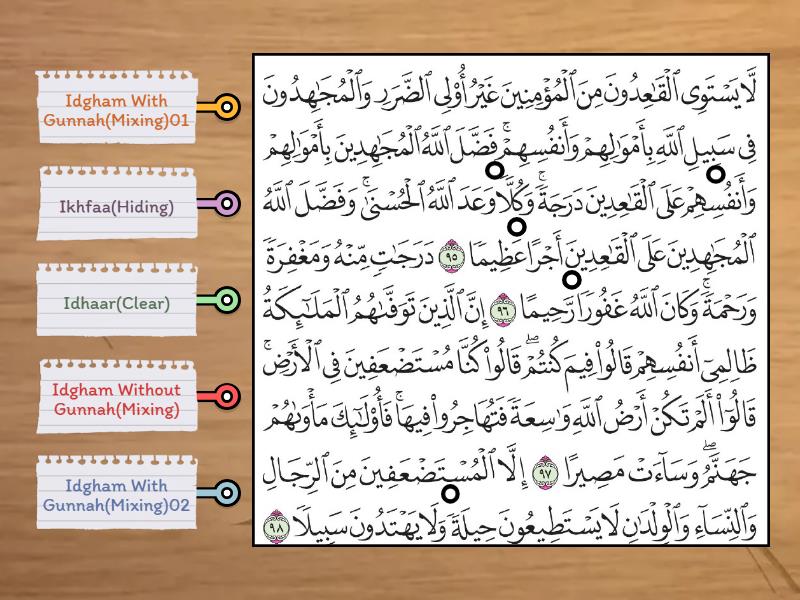 Idgham With
Gunnah(Mixing)01
Ikhfaa(Hiding)
Idhaar(Clear)
Idgham Without
Gunnah(Mixing)
Idgham With
Gunnah(Mixing)02
لَّا يَسْتَوِى ٱلْقَٰعِدُونَ مِنَ ٱلْمُؤْمِنِينَ غَيْرُ أُو۟لِى ٱلضَّرَرِ وَٱلْمُجَٰهِدُونَ
فِى سَبِيلِ ٱللَّهِ بِأَمْوَٰلِهِمْ وَأَنفُسِهِمْ ۚ فَضَّلَ ٱللَّهُ ٱلْمُجَٰهِدِينَ بِأَمْوَٰلِهِمْ
وَأَنفُسِهِمْ عَلَى ٱلْقَٰعِدِينَ دَرَجَةً ۚ وَكُلًّا وَعَدَ ٱللَّهُ ٱلْحُسْنَىٰ ۚ وَفَضَّلَ ٱللَّهُ
ٱلْمُجَٰهِدِينَ عَلَى ٱلْقَٰعِدِينَ أَجْرًا عَظِيمًا ٩٥ دَرَجَٰتٍ مِّنْهُ وَمَغْفِرَةً
وَرَحْمَةً ۚ وَكَانَ ٱللَّهُ غَفُورًا رَّحِيمًا ٩٦ إِنَّ ٱلَّذِينَ تَوَفَّىٰهُمُ ٱلْمَلَٰٓئِكَةُ
ظَالِمِىٓ أَنفُسِهِمْ قَالُوا۟ فِيمَ كُنتُمْ ۖ قَالُوا۟ كُنَّا مُسْتَضْعَفِينَ فِى ٱلْأَرْضِ ۚ
قَالُوٓا۟ أَلَمْ تَكُنْ أَرْضُ ٱللَّهِ وَٰسِعَةً فَتُهَاجِرُوا۟ فِيهَا ۚ فَأُو۟لَٰٓئِكَ مَأْوَىٰهُمْ
جَهَنَّمُ ۖ وَسَآءَتْ مَصِيرًا ٩٧ إِلَّا ٱلْمُسْتَضْعَفِينَ مِنَ ٱلرِّجَالِ
وَٱلنِّسَآءِ وَٱلْوِلْدَٰنِ لَا يَسْتَطِيعُونَ حِيلَةً وَلَا يَهْتَدُونَ سَبِيلًا ٩٨